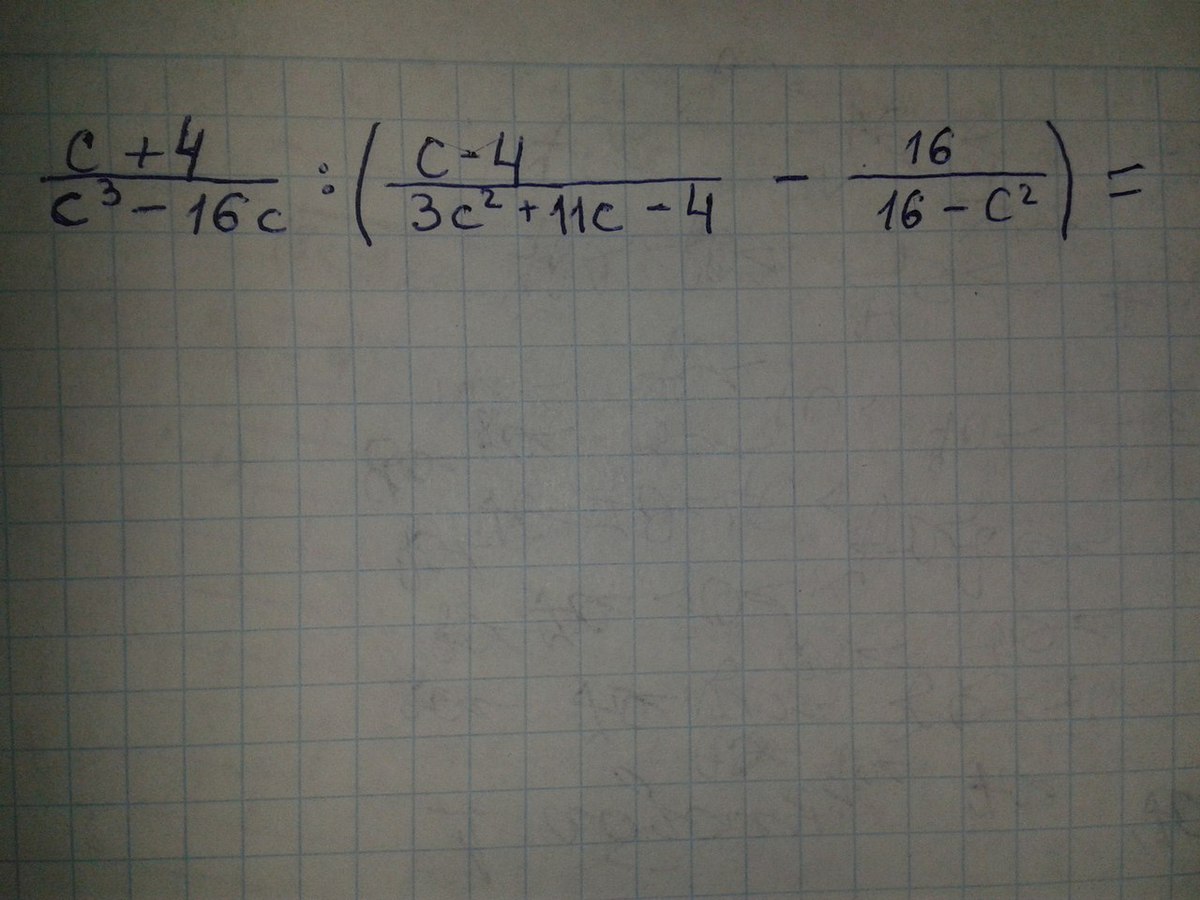 (c + 4)/(c³ - 16c) : ((c - 4)/(3c² + 11c - 4) - 16/(16 - c²)) =